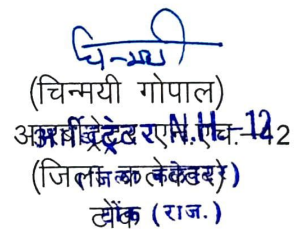 चिन्मयी
(चिन्मयी गोपाल)
आर्बीट्रेटर एन.एच.-12
आर्बीट्रेटर N.H.-12
(जिला कलेक्टर)
(जिला कलेक्टर)
टोंक
टोंक (राज.)